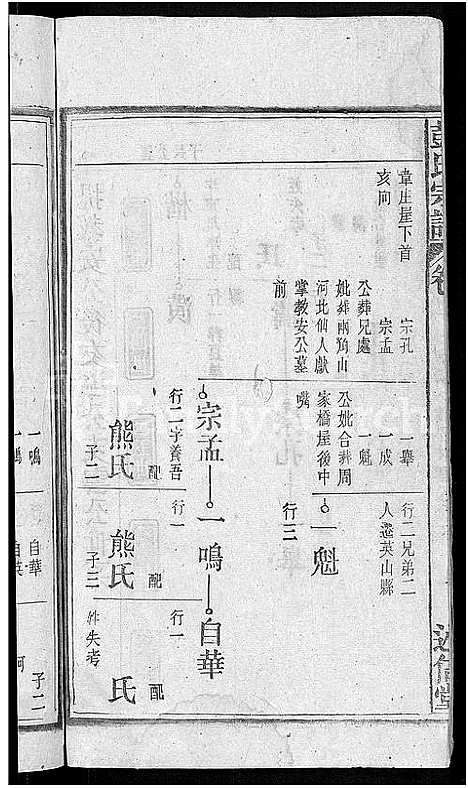 彭氏宗譜
卷
述信堂
章庄崖下首
亥向
宗孔
宗孟
公葬兄處
妣葬兩角山
河北仙人獻
掌教安公墓
前
一舉
一成
一魁
公妣合葬周
家橋屋後中
嘴
行二兄弟二
人遷英山縣
一魁
行三
宗孟
一鳴
自華
行二字養吾
配
熊氏
子二
行一
配
熊氏
子三
行一
配
氏
姓失考
一鳴
自華
自英
子二